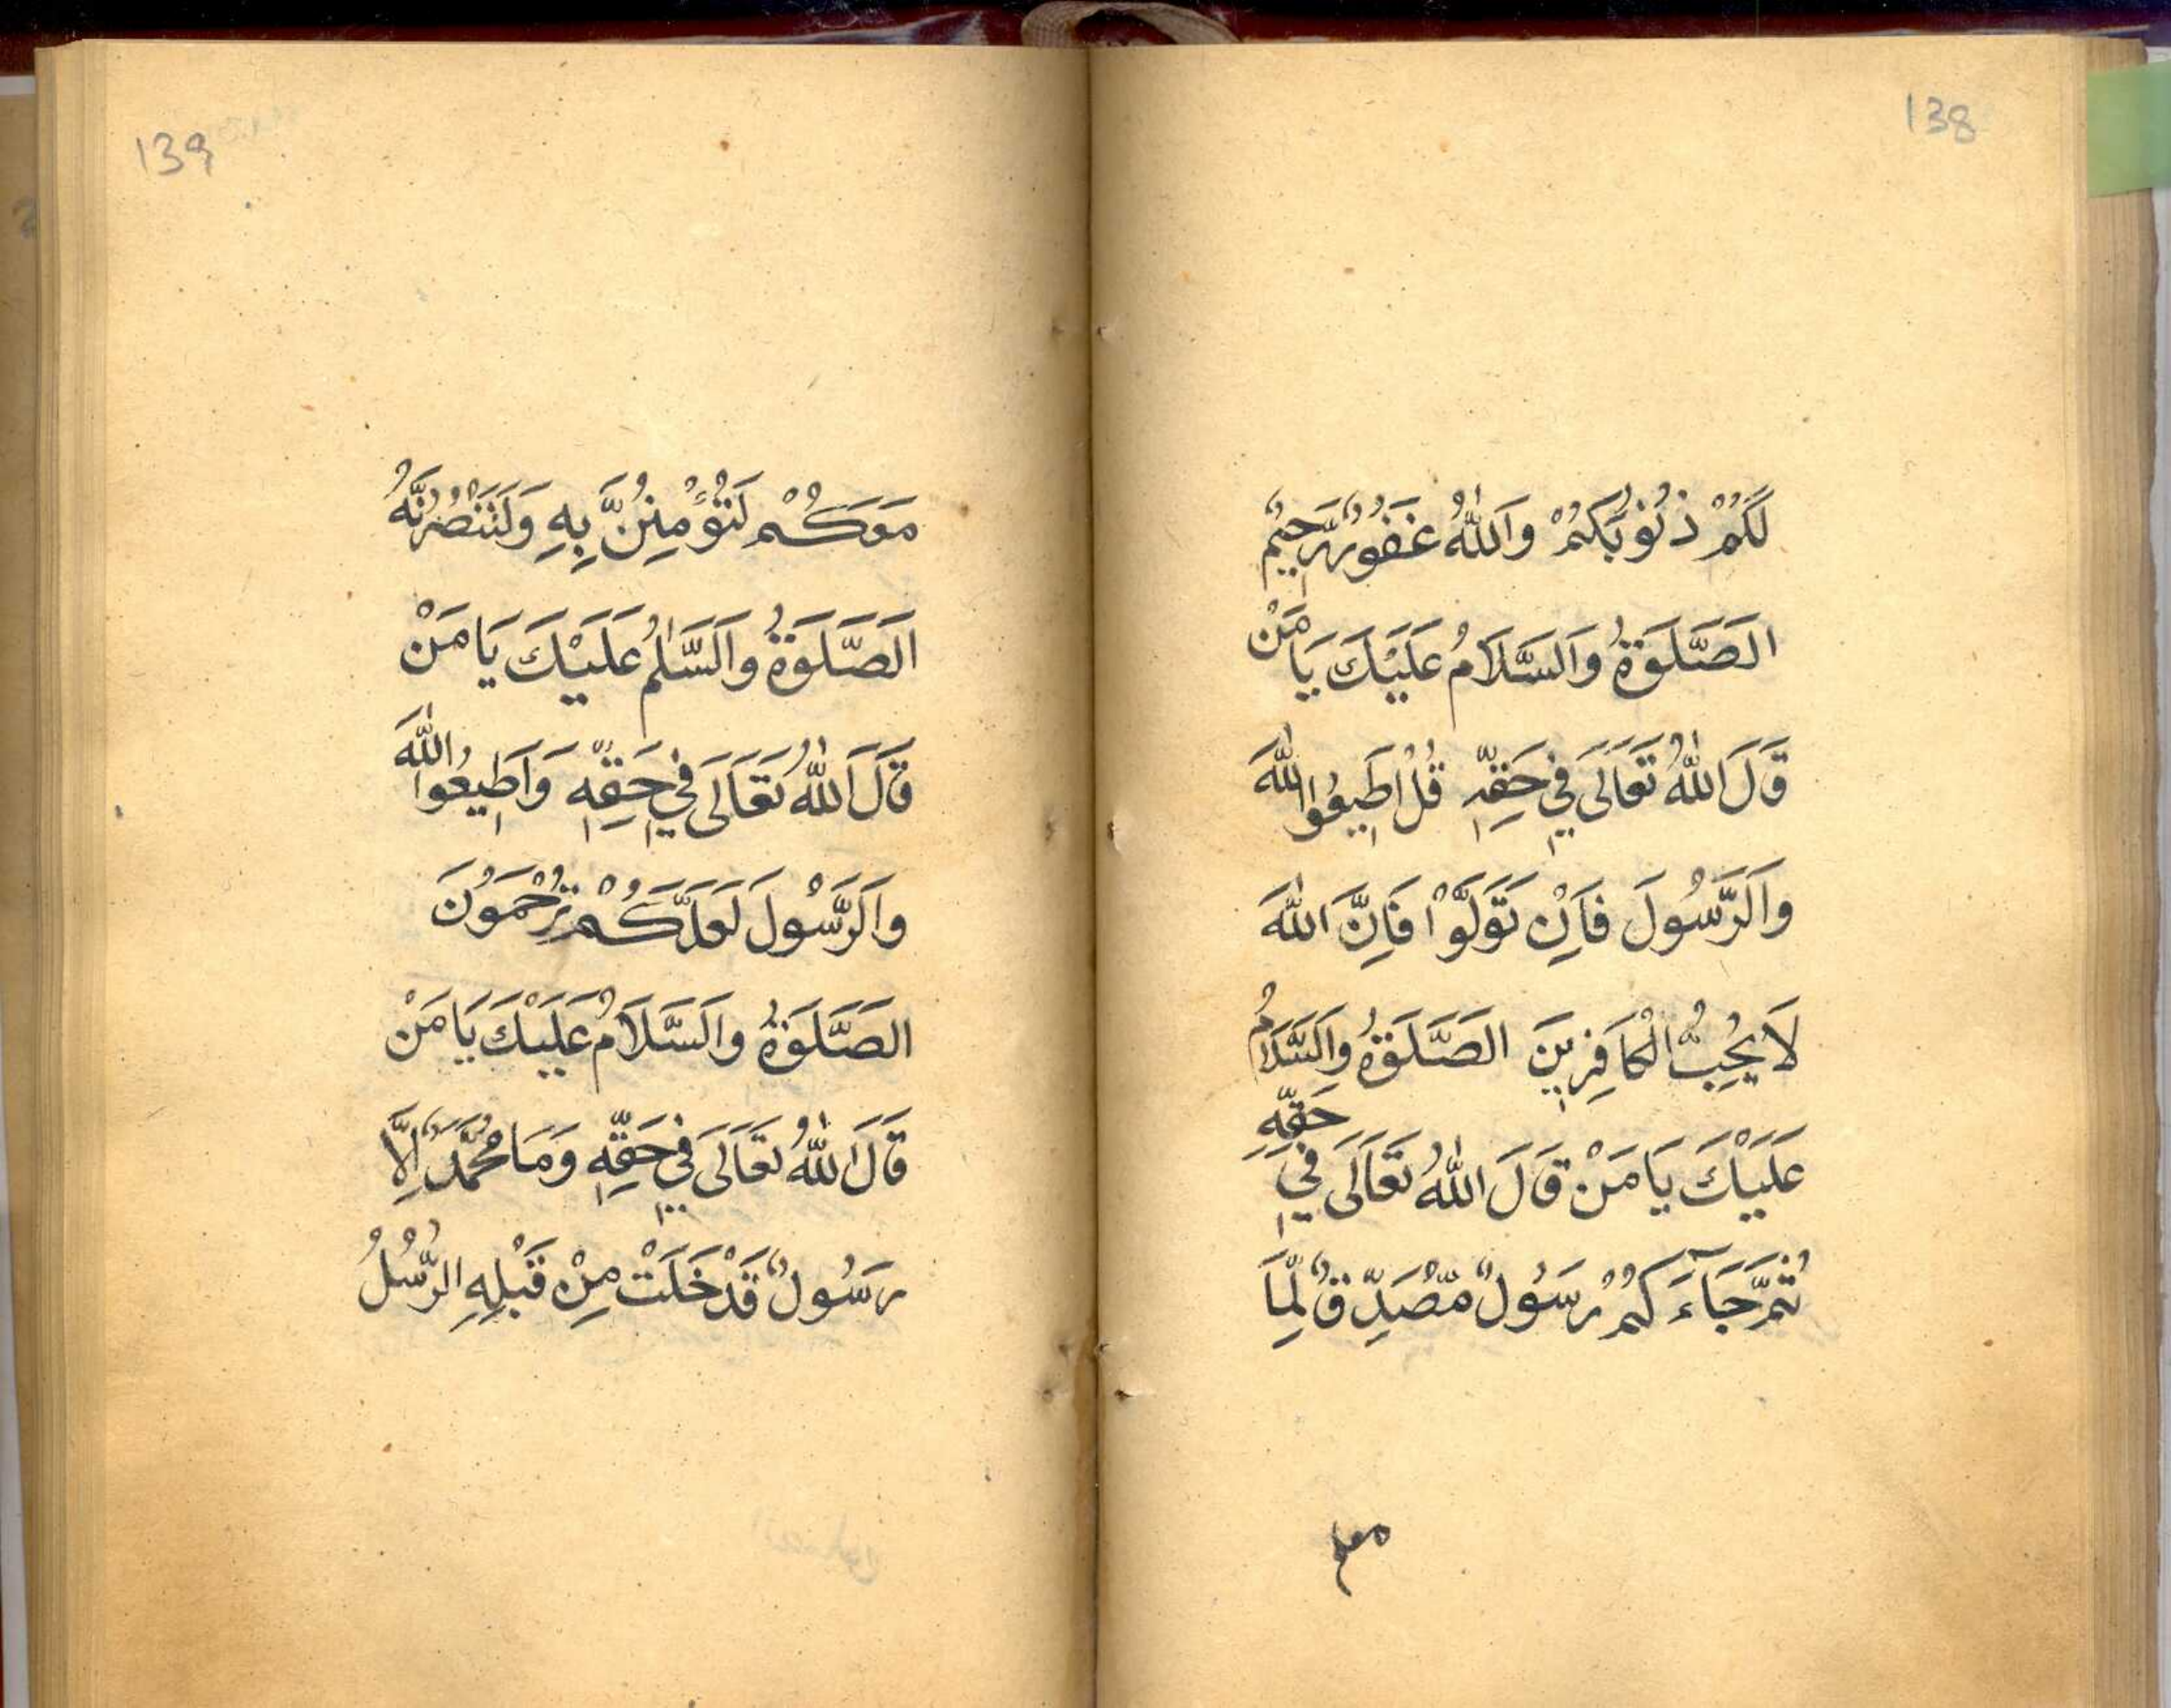 138
لَكُمْ ذُنُوبَكُمْ وَاللّٰهُ غَفُورٌ رَّحِيْمٌ
الَصَّلَوَةُ وَالَسَّلَامُ عَلَيْكَ يَا مَنْ
قَالَ اللّٰهُ تَعَالَى فِي حَقِّهِ قُلْ اَطِيعُوا اللّٰهَ
وَالَرَّسُولَ فَاِنْ تَوَلَّوْا فَاِنَّ اللّٰهَ
لَا يُحِبُّ الْكَافِرِينَ الصَّلَوةُ وَالَسَّلَامُ
عَلَيْكَ يَا مَنْ قَالَ اللّٰهُ تَعَالَى فِي حَقِّهِ
ثُمَّ جَآءَكُمْ رَسُولٌ مُّصَدِّقٌ لِّمَا
معكم
139
مَعَكُمْ لَتُؤْمِنُنَّ بِهِ وَلَتَنْصُرُنَّهُ
الَصَّلَوَةُ وَالَسَّلٰمُ عَلَيْكَ يَا مَنْ
قَالَ اللّٰهُ تَعَالَى فِي حَقِّهِ وَاَطِيعُوا اللّٰهَ
وَالَرَّسُولَ لَعَلَّكُمْ تُرْحَمُونَ
الصَّلَوَةُ وَالَسَّلَامُ عَلَيْكَ يَا مَنْ
قَالَ اللّٰهُ تَعَالَى فِي حَقِّهِ وَمَا مُحَمَّدٌ اِلَّا
رَسُولٌ قَدْ خَلَتْ مِنْ قَبْلِهِ الرُّسُلُ